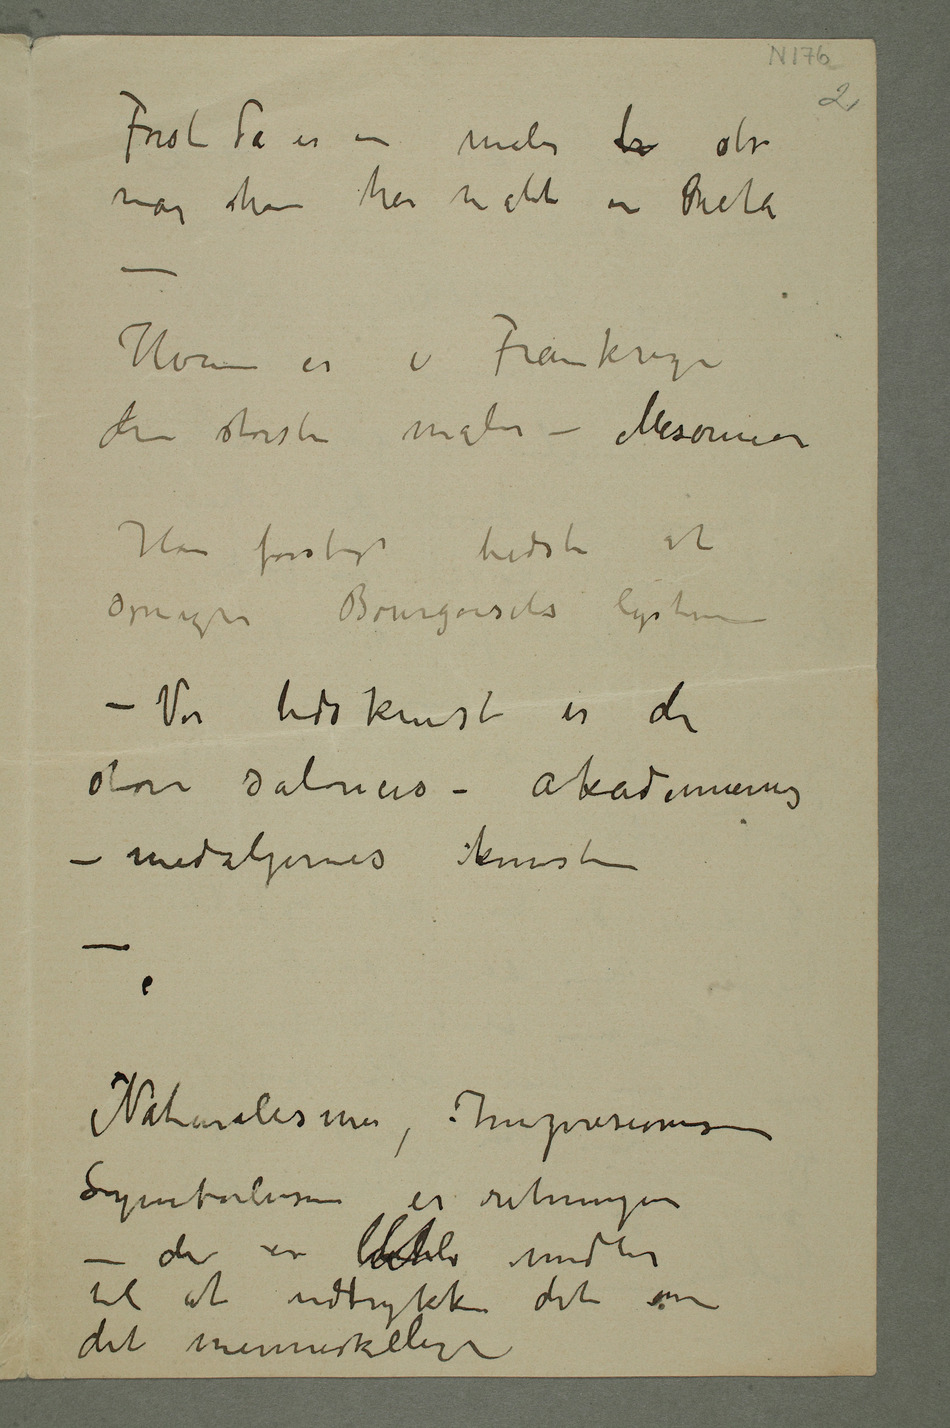 N 176
2,
Først da er en maler stor
når han har malt en Pieta
—
Hvem er i Frankrige
den største maler – Mesonier
Han forstår bedst at
smigre Bourgoisets lyster
– Vor tids kunst er de
store saloners – akademiernes
– medaljernes kunst
—
Naturalisme, Impresionisme
Symbolisme er retninger
– de er midler
til at udtrykke det
det menneskelige